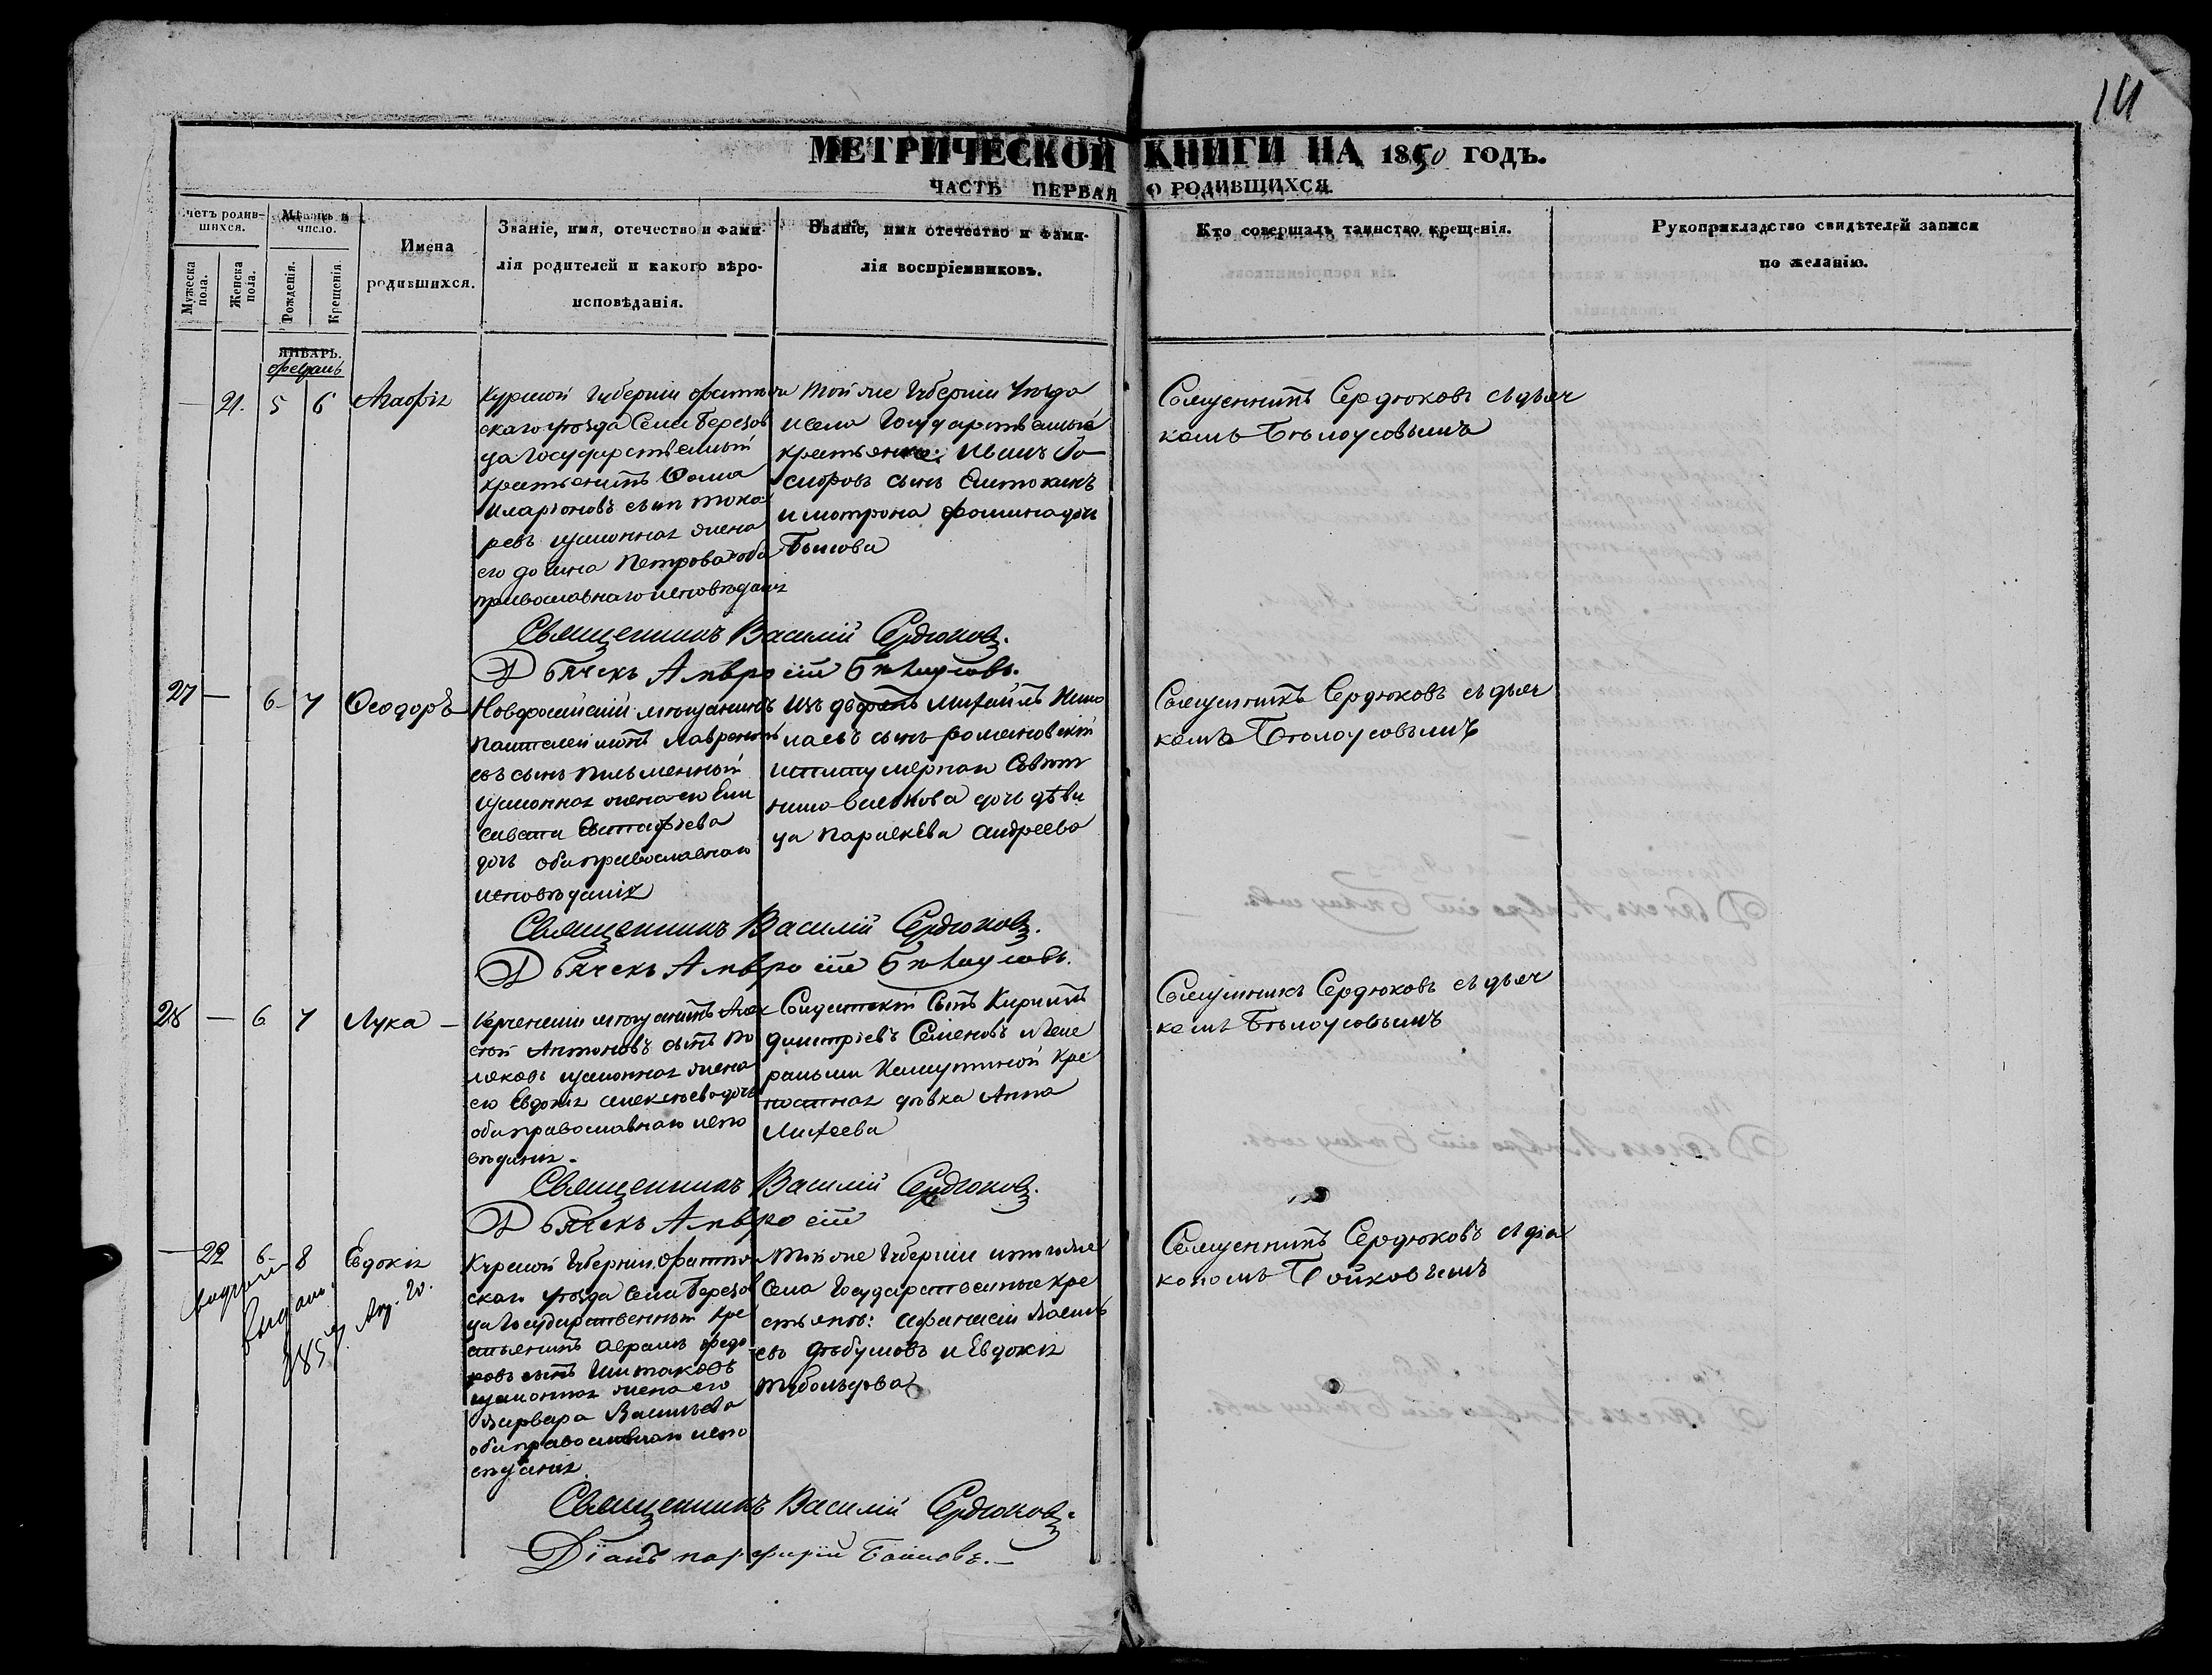 14
МЕТРИЧЕСКОЙ КНИГИ НА 1850 ГОДЪ.
ЧАСТЬ ПЕРВАЯ О РОДИВШИХСЯ.
Счетъ родив-
шихся.
Мѣсяцъ и
число.
Мужеска
пола.
Женска
пола.
Рожденія.
Крещенія.
Имена
родившихся.
Званіе, имя, отечество и фами-
лія родителей и какого вѣро-
исповѣданія.
Званіе, имя отечество и фами-
лія воспріемниковъ.
Кто совершалъ таинство крещенія.
Рукоприкладство свидѣтелей записи
по желанію.
ЯНВАРЬ.
февраль
— 21. 5 6 Агафія
Курской Губерніи фатѣж
скаго уѣзда Села Березов
ца Государственный
крестьянинъ Фома
Иларіоновъ сынъ Тока
ревъ изаконная жена
его Петрова оба
православнаго исповѣданія
Той же Губерніи Уѣзда
исела Государственные
крестьяне: Иванъ
сынъ
и мотрона фомина дочь
Священникъ Сердюковъ съ дьяч
комъ Бѣлоусовымъ
Священникъ Василій Сердюковъ.
Дьячекъ Амвросій Бѣлоусовъ.
27 — 6 7 Ѳеодоръ
Новоросійскій мѣщанинъ
Пантелеимонъ Лаврентъ
евъ сынъ Письменный
изаконная жена его Ели
савета Евстафіева
дочь оба православнаго
исповѣданія
Михаилъ Нико
лаевъ сынъ романовскій
дочь дѣви
ца Параскева андреева
Священникъ Сердюковъ съ дьяч
комъ Бѣлоусовымъ
Священникъ Василій Сердюковъ.
Дьячекъ Амвросій Бѣлоусовъ.
28 — 6 7 Лука —
Керченскій мѣщанинъ Алек
сѣй Антоновъ сынъ По
ляковъ изаконная жена
его Евдокія алексѣева дочь
оба православнаго испо
вѣданія.
Солдатскій Сынъ Кирилъ
димитріевъ Семеновъ и Гене
ральши Кре
постная дѣвка Анна
Михеева
Священникъ Сердюковъ съ дьяч
комъ Бѣлоусовымъ
Священникъ Василій Сердюковъ.
Дьячекъ Амвросій
— 22 6 8 Евдокія
выдано
1857 Авг. 20.
Курской Губерніи, фатеж
скаго уѣзда Села Березов
ца Государственный Кре
стьянинъ Аврамъ федо
ровъ сынъ Шитаковъ
изаконная жена его
Варвара Васильева
оба православнаго испо
вѣданія
Той же Губерніи итогоже
Села Государственные кре
стьяне: Афанасій
евъ и Евдокія
Священникъ Сердюковъ съ діа
кономъ Бойковымъ
Священникъ Василій Сердюковъ.
Діаконъ порфирій Бойковъ.—